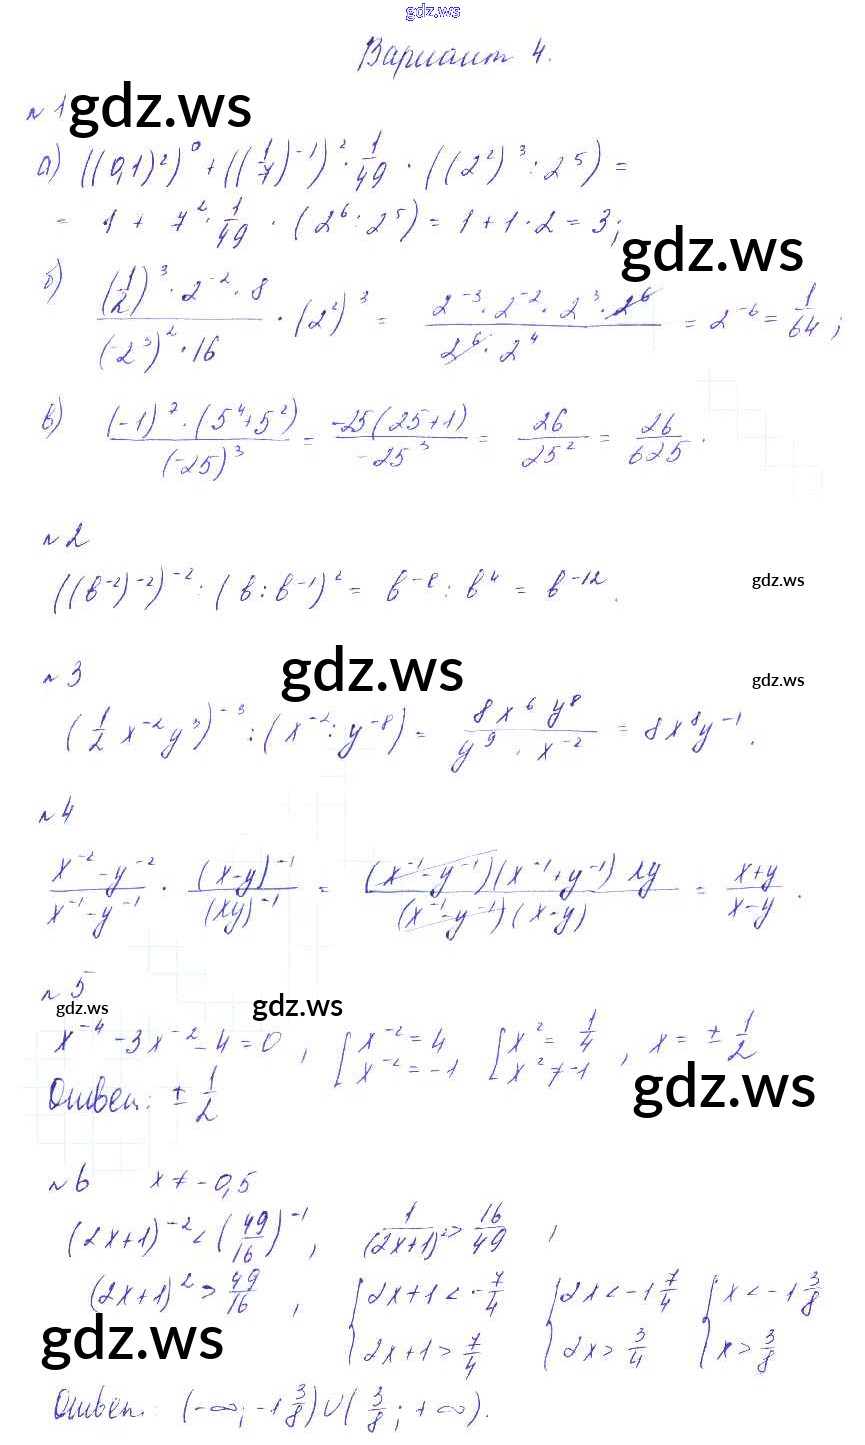 gdz.ws
Вариант 4.
№1 gdz.ws
а) ((0,1)²)⁰ + ((1/7)⁻¹)² · 1/49 · ((2²)³ : 2⁵) =
= 1 + 7² · 1/49 · (2⁶ : 2⁵) = 1 + 1 · 2 = 3;
gdz.ws
б) ((1/2)³ · 2⁻² · 8)/((-2³)² · 16) · (2²)³ = (2⁻³ · 2⁻² · 2³ · 2⁶)/(2⁶ · 2⁴) = 2⁻⁶ = 1/64;
в) ((-1)⁷ · (5⁴+5²))/((-25)³) = (-25(25+1))/(-25³) = 26/25² = 26/625.
№2
((b⁻²)⁻²)⁻² : (b : b⁻¹)² = b⁻⁸ : b⁴ = b⁻¹².
gdz.ws
№3 gdz.ws gdz.ws
(1/2 x⁻²y³)⁻³ : (x⁻² : y⁻⁸) = (8x⁶y⁸)/(y⁹ · x⁻²) = 8x⁸y⁻¹.
№4
(x⁻²-y⁻²)/(x⁻¹-y⁻¹) · ((x-y)⁻¹)/((xy)⁻¹) = ((x⁻¹-y⁻¹)(x⁻¹+y⁻¹) xy)/((x⁻¹-y⁻¹)(x-y)) = (x+y)/(x-y).
№5
gdz.ws gdz.ws
x⁻⁴ - 3x⁻² - 4 = 0, [x⁻² = 4 [x² = 1/4, x = ± 1/2
x⁻² = -1 x² ≠ -1
gdz.ws
Ответ: ± 1/2
№6 x ≠ -0,5
(2x+1)⁻² < (49/16)⁻¹, 1/(2x+1)² > 16/49,
(2x+1)² > 49/16, {2x+1 < -7/4 {2x < -1 7/4 {x < -1 3/8
2x+1 > 7/4 2x > 3/4 x > 3/8
gdz.ws
Ответ: (-∞; -1 3/8) ∪ (3/8; +∞).